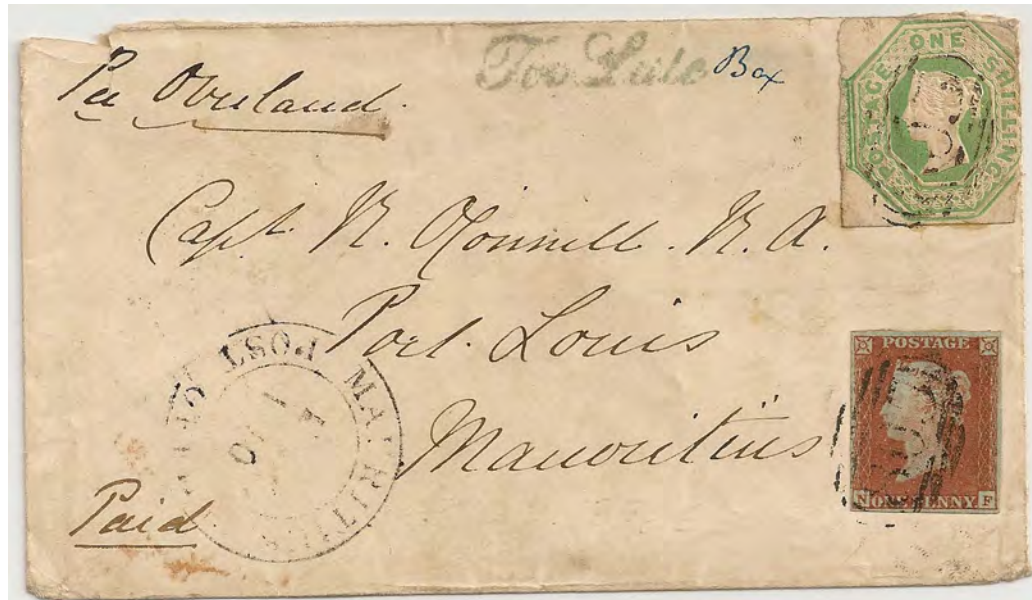 Per Overland.
Too Late Box
ONE SHILLING POSTAGE
Capt. N. O'Connell. R. A.
Port. Louis
Mauritius
MAURITIUS POST OFFICE
POSTAGE
N ONE PENNY F
Paid